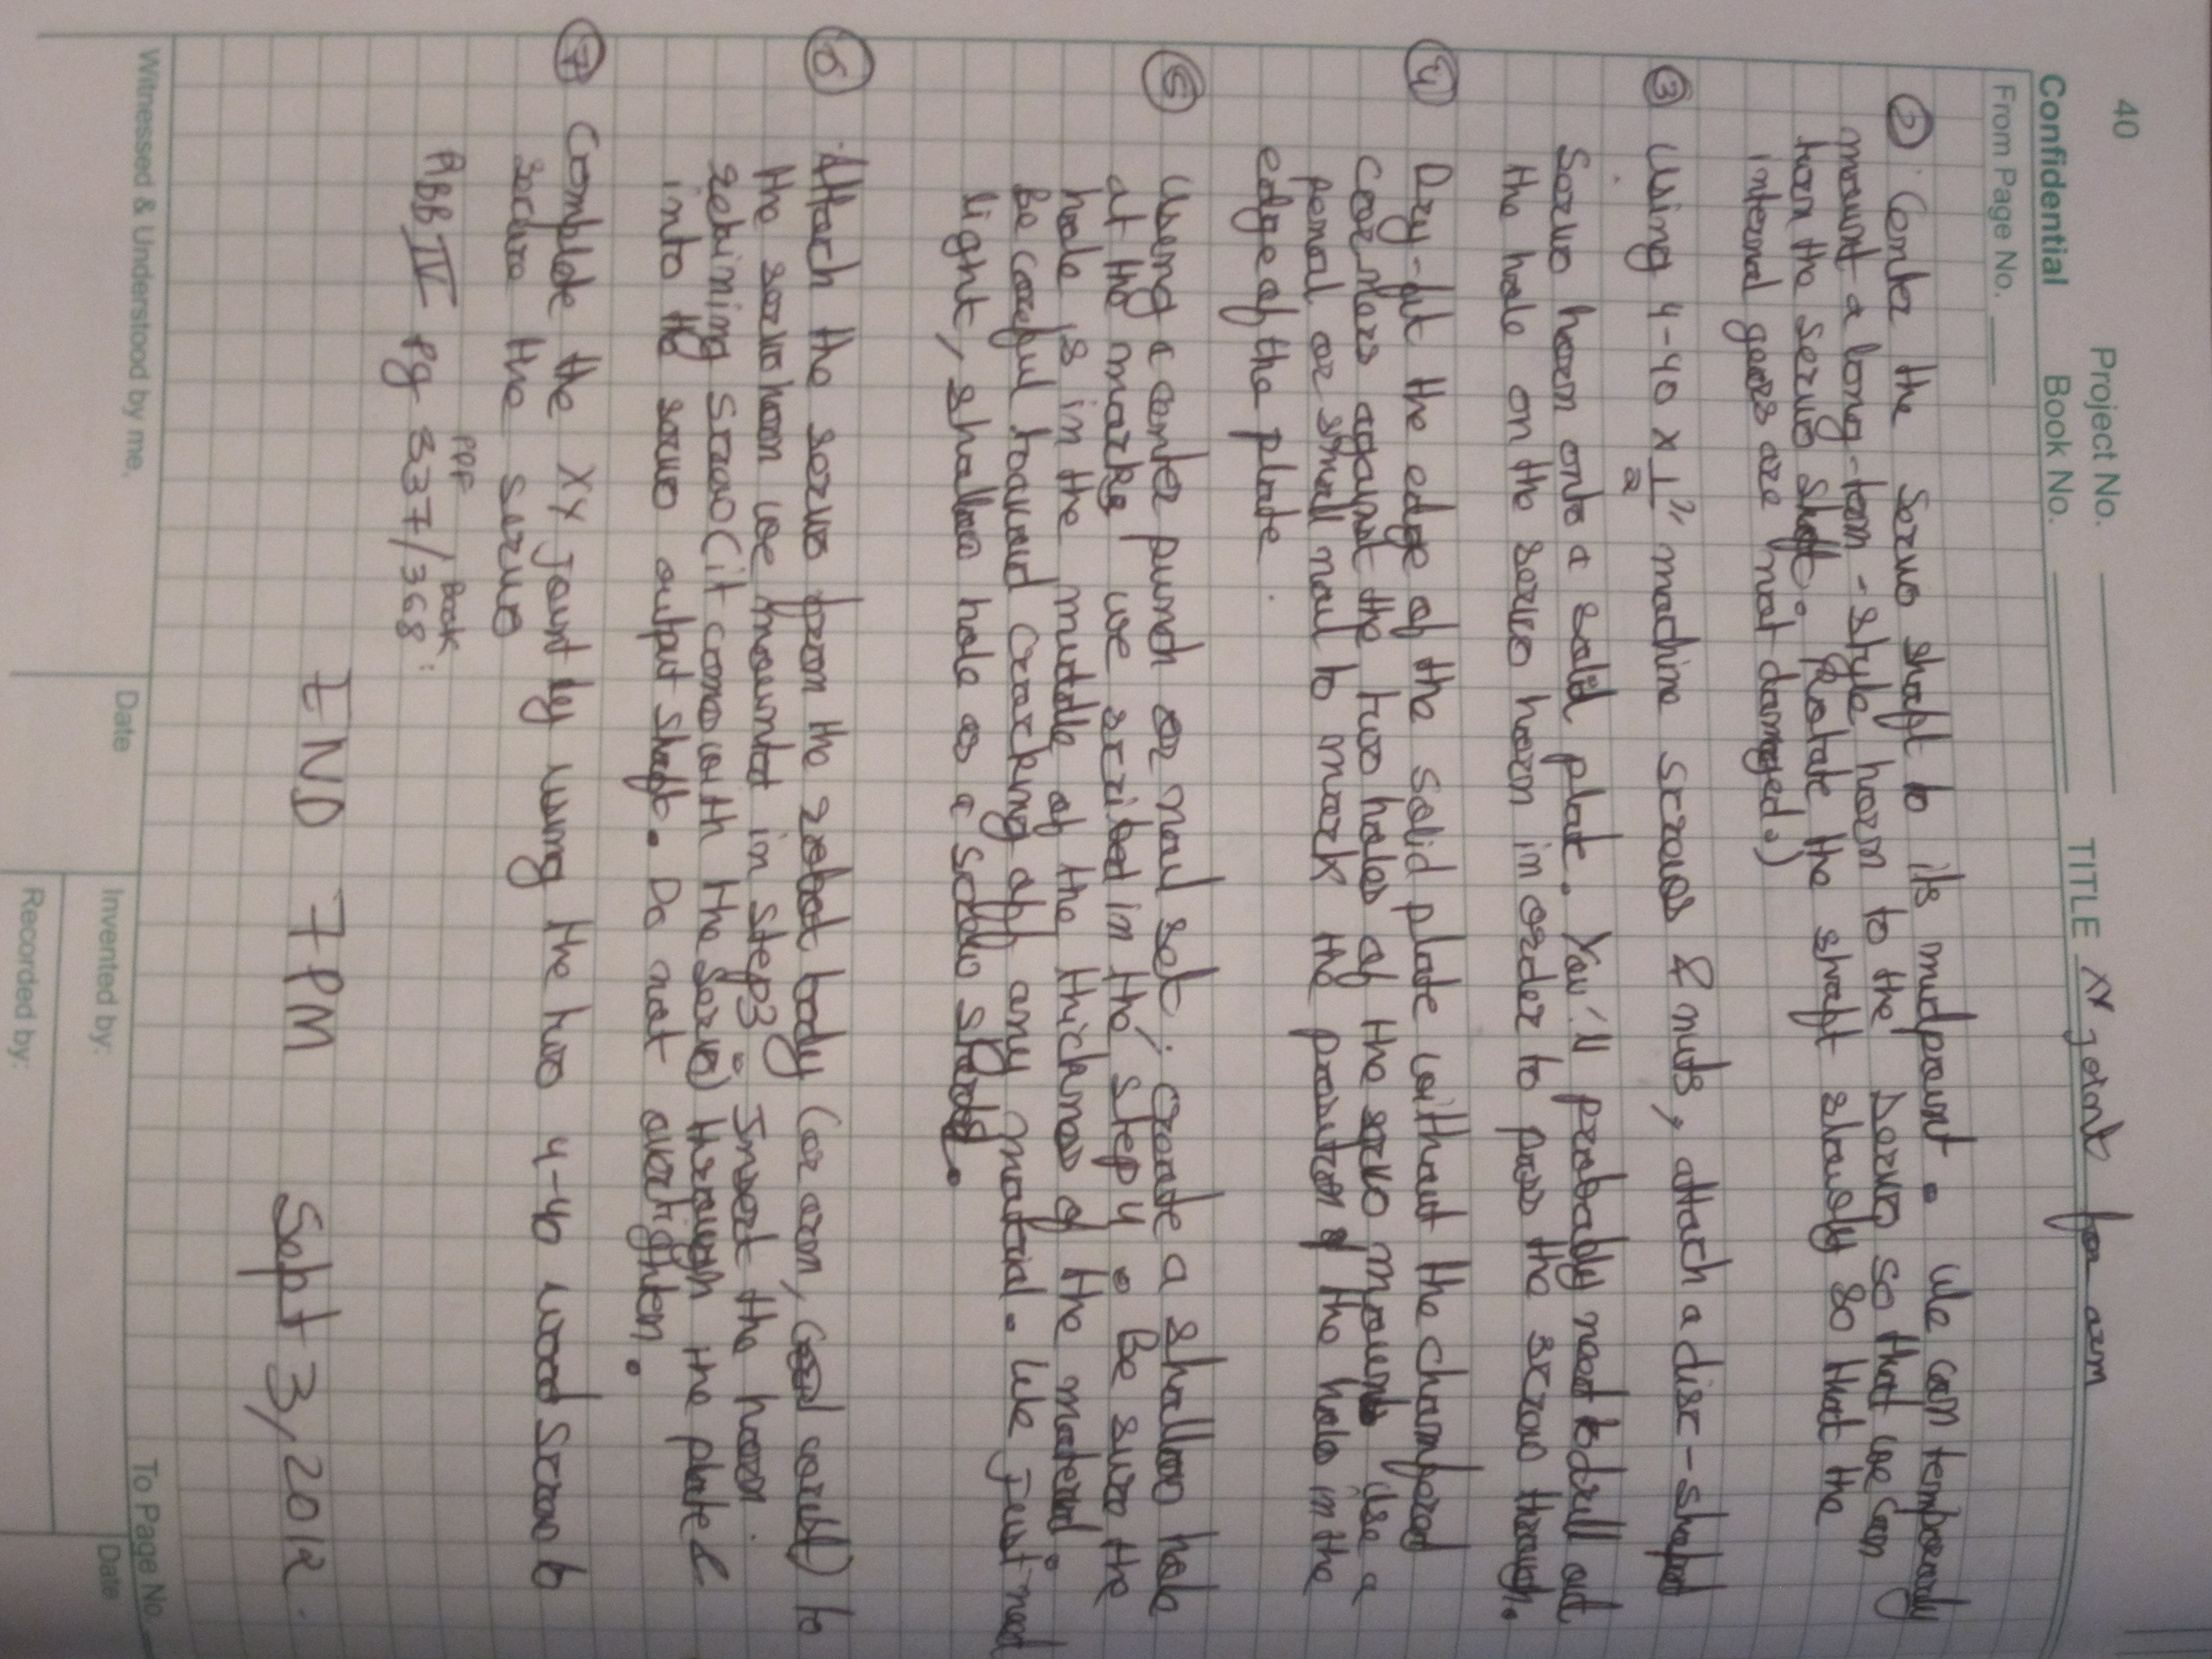 40
Project No.
TITLE XY joint for arm
Confidential
Book No.
From Page No.
② Center the servo shaft to its midpoint. We can temporarily
mount a long-tom-style horn to the servo so that we can
turn the servo shaft. Rotate the shaft slowly so that the
internal gears are not damaged.)
③ Using 4-40 x 1/2" machine screws & nuts, attach a disc-shaped
servo horn onto a solid plate. You'll probably need to drill out
the hole on the servo horn in order to pass the screw through.
④ Dry-fit the edge of the solid plate without the chamfered
corners against the two holes of the servo mount. Use a
pencil or small nail to mark the position of the hole in the
edge of the plate.
⑤ Using a center punch or nail set, create a shallow hole
at the marks we scribed in the step 4. Be sure the
hole is in the middle of the thickness of the material.
Be careful toward cracking off any material. We just need
light, shallow hole as a screw starter.
⑥ Attach the servo from the robot body (or arm, wrist) to
the servo horn we mounted in step 3. Insert the horn
retaining screw (it comes with the servo) through the plate &
into the servo output shaft. Do not overtighten.
⑦ Complete the XY joint by using the two 4-40 wood screw to
secure the servo
PDF Book
RBB IV Pg 337/368
END 7PM Sept 3, 2012.
To Page No.
Witnessed & Understood by me,
Date
Invented by:
Date
Recorded by: